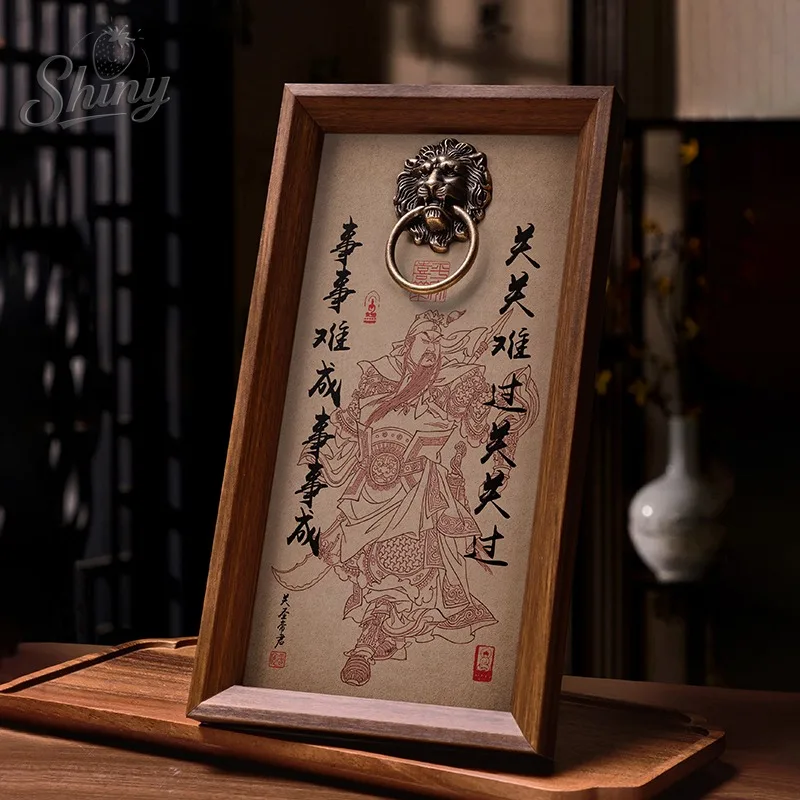 Shiny
关关难过关关过
事事难成事事成
关圣帝君